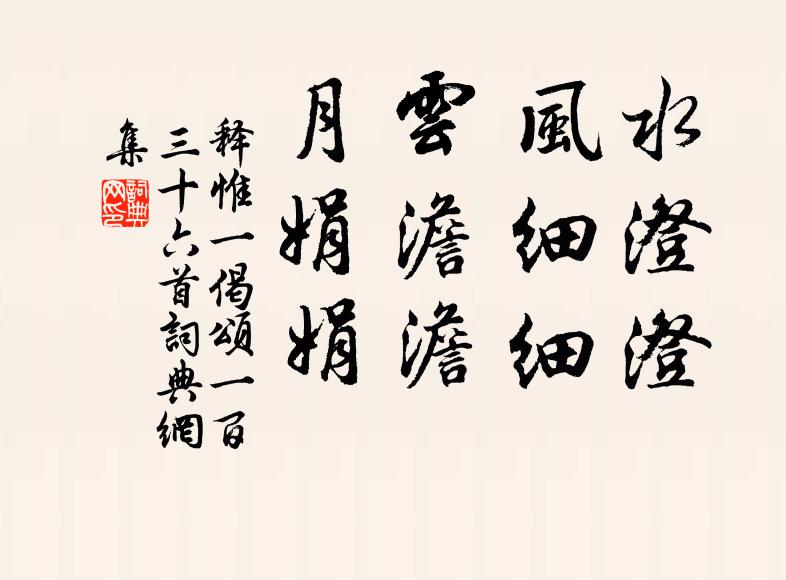 水澄澄
風細細
雲澹澹
月娟娟
释惟一偈頌一百
三十六首詞典網
集
詞典
网印